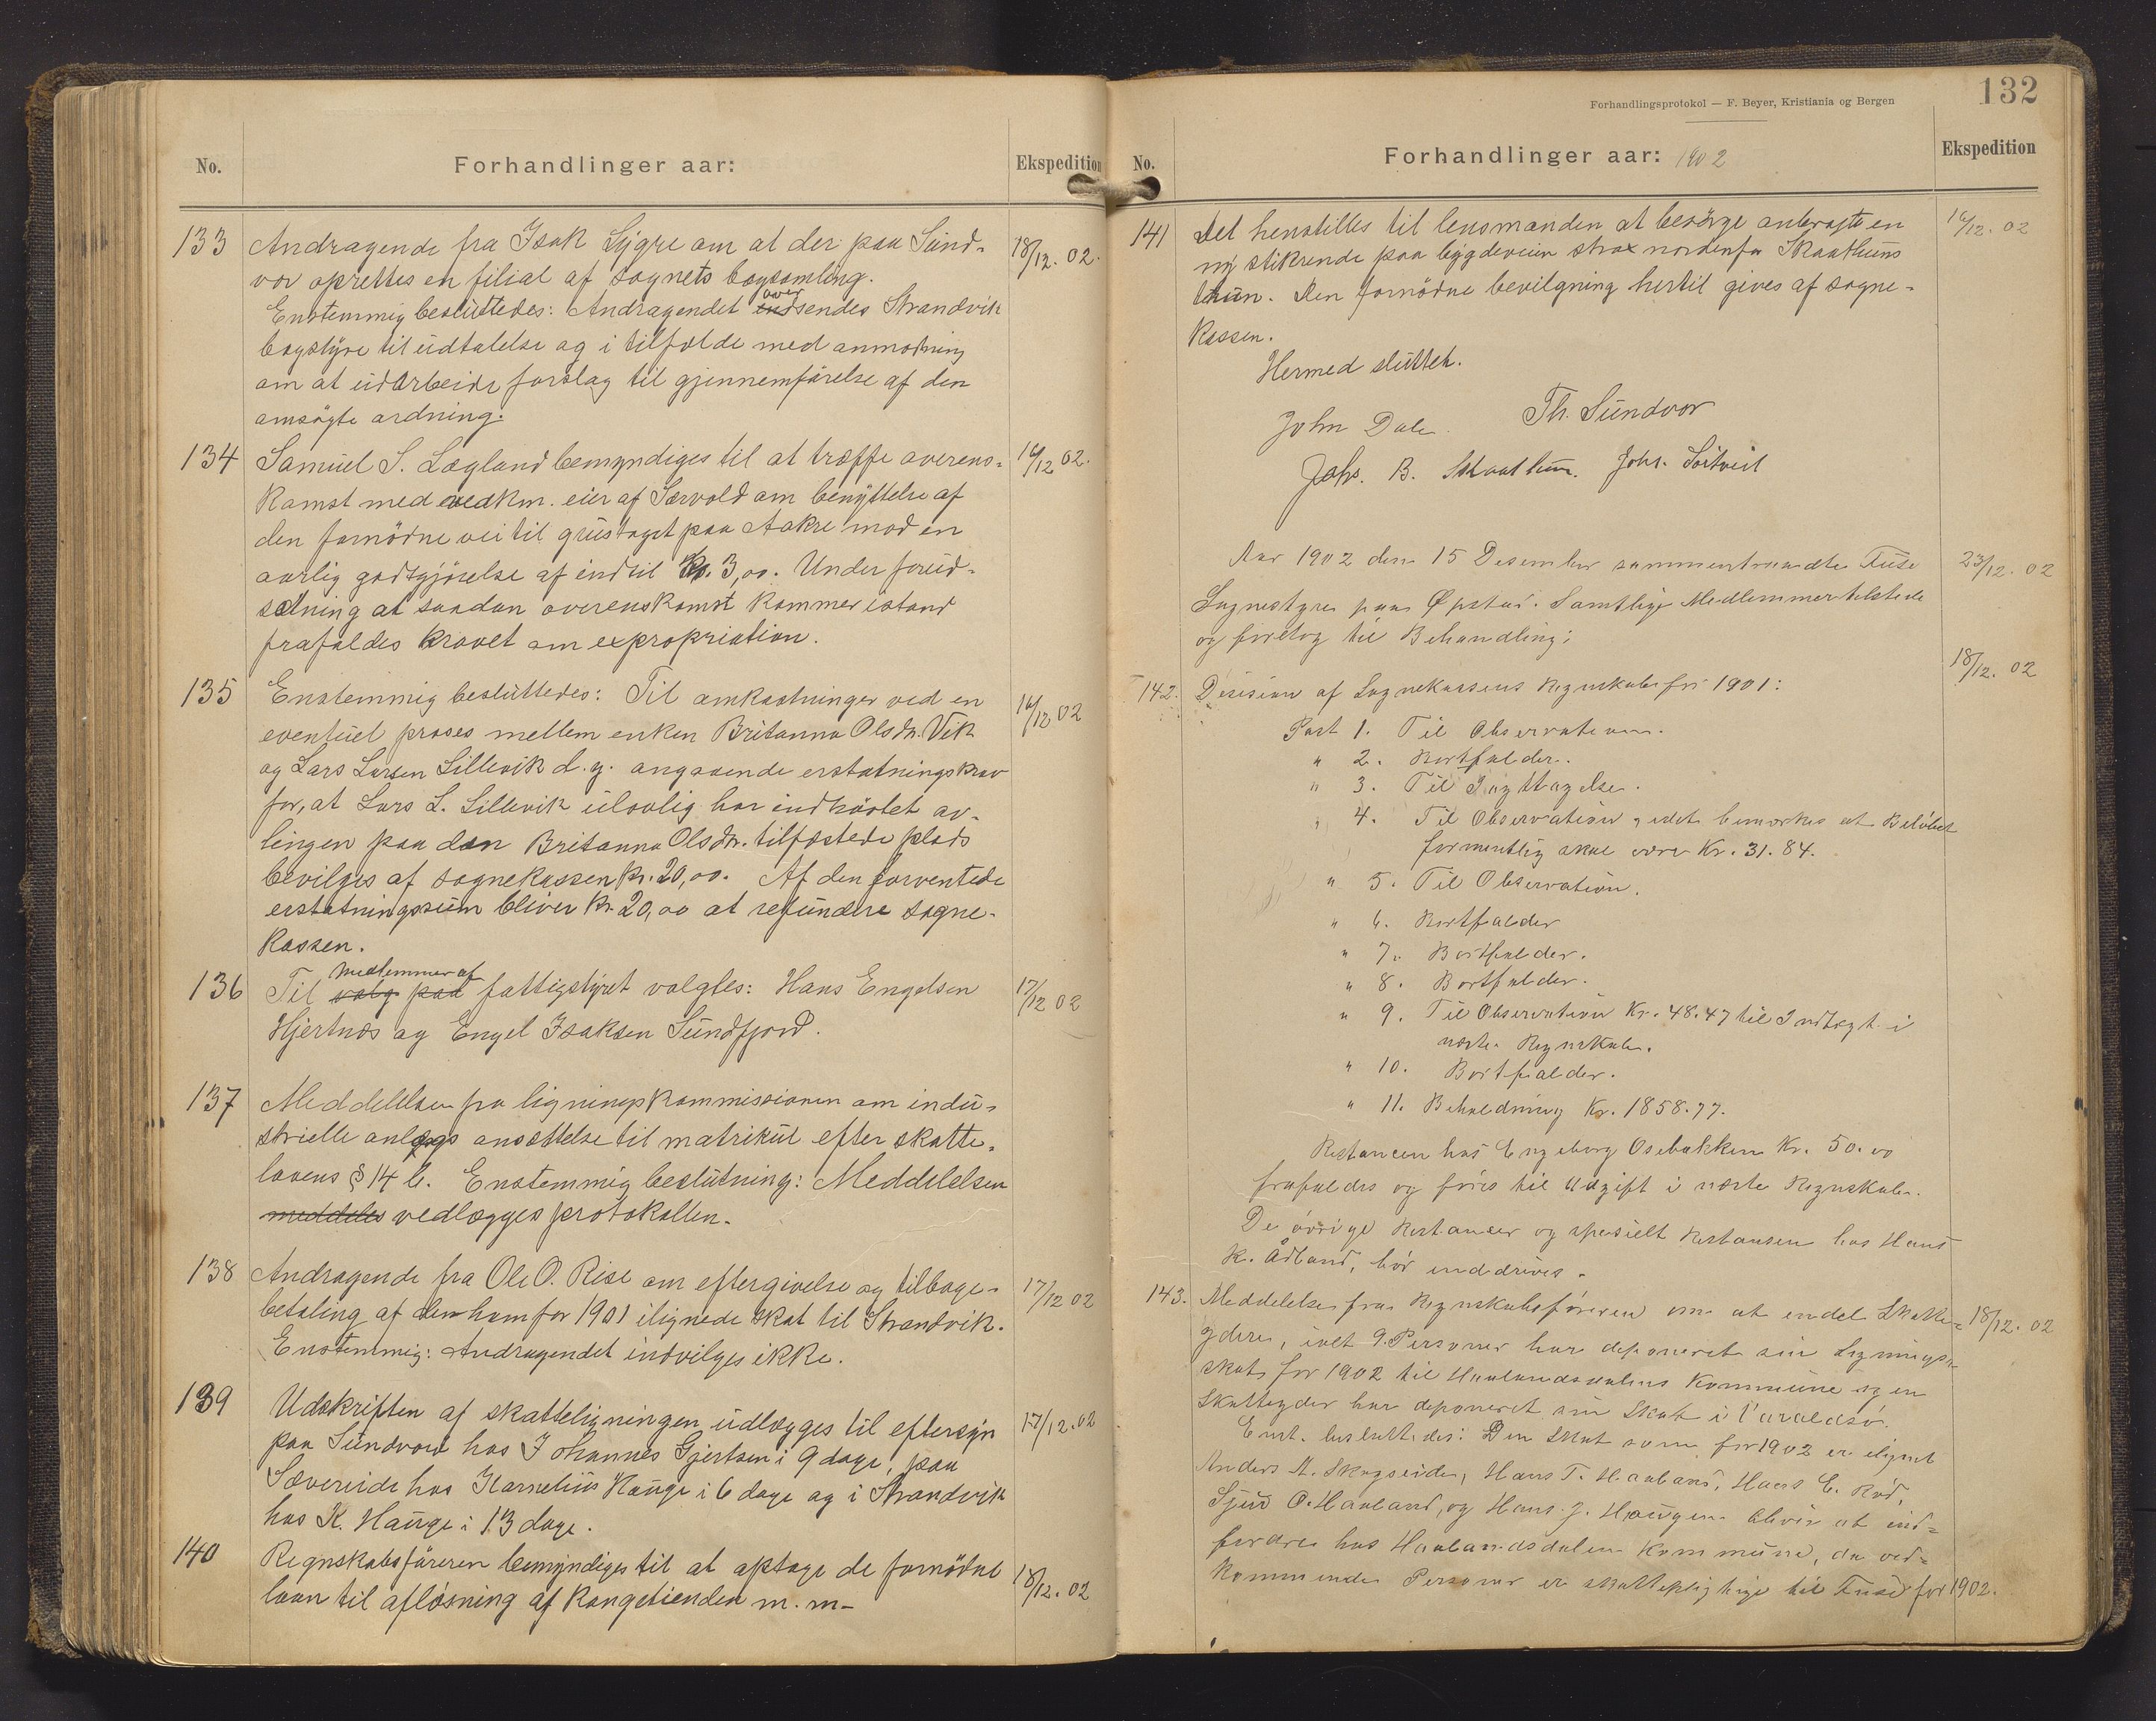 No.
Forhandlinger aar:
Ekspedition
133
Andragende fra Isak Lygre om at der paa Sund-
18/12. 02.
vor oprettes en filial af sognets bogsamling.
Enstemmig besluttedes: Andragendet over sendes Strandvik
bogstyre til udtalelse og i tilfælde med anmodning
om at udarbeide forslag til gjennemførelse af den
omsøgte ordning.
134
Samuel S. Lægland bemyndiges til at træffe overens-
16/12 02.
komst med vedkm. eier af Sævold om benyttelse af
den fornødne vei til grustaget paa Aakre mod en
aarlig godtgjørelse af indtil Kr. 3,00. Under forud-
sætning at saadan overenskomst kommer istand
frafaldes kravet om expropriation.
135
Enstemmig besluttedes: Til omkostninger ved en
16/12 02
eventuel proses mellem enken Britanna Olsdr. Vik
og Lars Larsen Lillevik d.y. angaaende erstatningskrav
for, at Lars L. Lillevik ulovlig har indhøstet av-
lingen paa den Britanna Olsdr. tilfæstede plads
bevilges af sognekassen kr. 20,00. Af den forventede
erstatningssum bliver kr. 20,00 at refundere sogne-
kassen.
136
Til valg paa medlemmer af fattigstyret valgtes: Hans Engelsen
17/12 02
Hjertnes og Engel Isaksen Sundfjord.
137
Meddelelse fra ligningskommissionen om indu-
strielle anlægs ansættelse til matrikul efter skatte-
lovens § 14 b. Enstemmig beslutning: Meddelelsen
meddeles vedlægges protokollen.
138
Andragende fra Ole O. Rise om eftergivelse og tilbage-
17/12 02
betaling af den ham for 1901 ilignede skat til Strandvik.
Enstemmig: Andragendet indvilges ikke.
139
Udskriften af skatteligningen udlægges til eftersyn
17/12.02
paa Sundvor hos Johannes Gjertsen i 9 dage, paa
Sævereide hos Kornelius Hauge i 6 dage og i Strandvik
hos K. Hauge i 13 dage.
140
Regnskabsføreren bemyndiges til at optage de fornødne
18/12. 02
laan til afløsning af Kongetienden m.m-
Forhandlingsprotokol — F. Beyer, Kristiania og Bergen
132
No.
Forhandlinger aar: 1902
Ekspedition
141
Det henstilles til lensmanden at besørge anbragt en
16/12. 02
ny stikrende paa bygdeveien strax nordenfor Skaathuns
tun. Den fornødne bevilgning hertil gives af sogne-
kassen.
Hermed sluttet.
John Dale. Th. Sundvor
Johs. B. Skaathun. Johs. Søitveit
Aar 1902 den 15 Desember sammentraadte Fuse
23/12. 02
Sognestyre paa Øpstad. Samtlige Medlemmer tilstede
og foretog til Behandling:
18/12. 02
142.
Desision af Sognekassens Regnskab for 1901:
Post 1. Til Observation.
" 2. Bortfalder.
" 3. Til Iagttagelse.
" 4. Til Observation, idet bemærkes at Beløbet
formentlig skal være Kr. 31.84.
" 5. Til Observation.
" 6. Bortfalder
" 7. Bortfalder.
" 8. Bortfalder.
" 9. Til Observation Kr. 48.47 til Indtægt i
næste Regnskab.
" 10. Bortfalder.
" 11. Beholdning Kr. 1858.77.
Restancen hos Engeborg Osebakken Kr. 50.00
frafaldes og føres til Udgift i næste Regnskab.
De øvrige Restanser og spesielt Restansen hos Hans
K. Ådland, bør inddrives.
143.
Meddelelse fra Regnskabsføreren om at endel Skatte-
18/12. 02
ydere, ialt 9 Personer har deponeret sin Lignings-
skat for 1902 til Haalandsdalens Kommune og en
Skatteyder har deponeret sin Skat i Varaldsø.
Enst. besluttedes: Den Skat som for 1902 er ilignet
Anders A. Skogseide, Hans T. Haaland, Hans E. Rød,
Sjur O. Haaland, og Hans J. Haugen bliver at ind-
fordre hos Haalandsdalen Kommune, da ved-
kommende Personer er skattepligtige til Fuse for 1902.